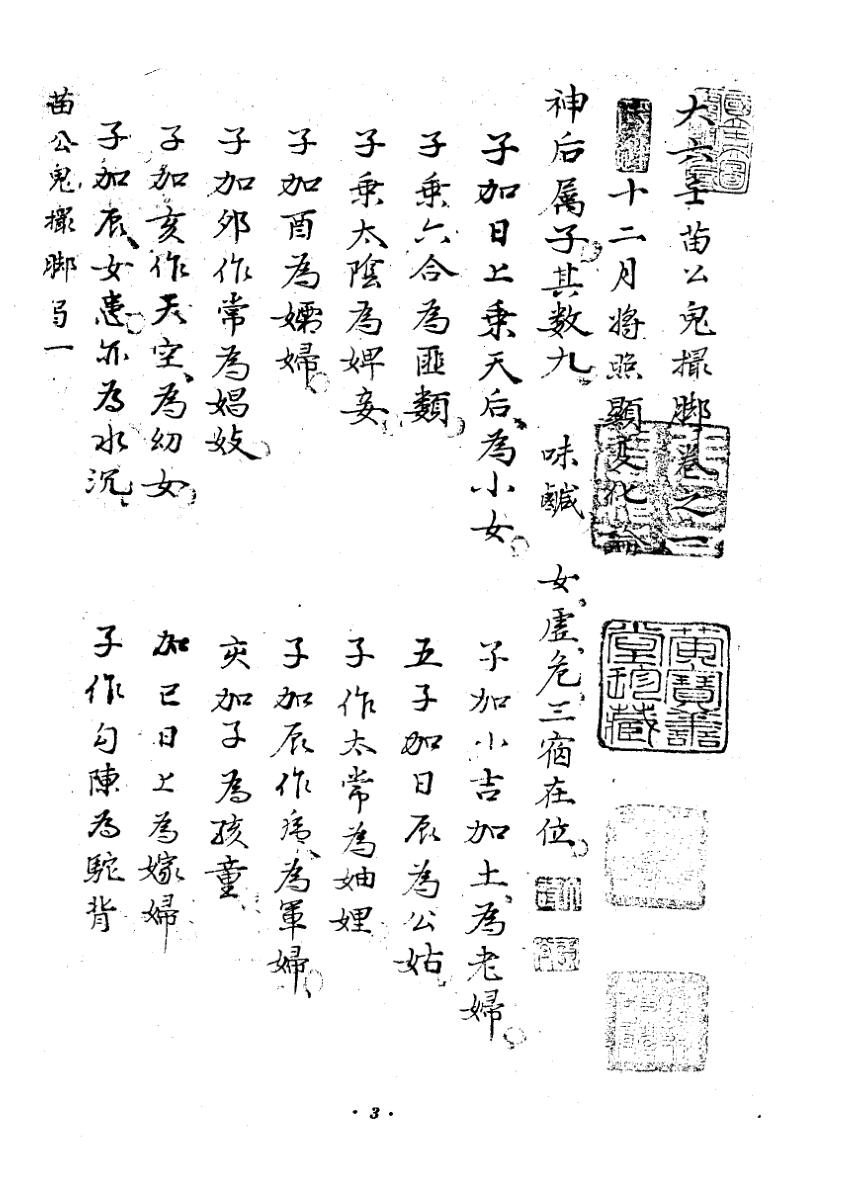 大六壬苗公鬼撮脚卷之一
十二月將照顯變化論
神后属子其数九 味鹹 女虛危三宿在位
子加日上乗天后為小女 子加小吉加土為老婦
子乗六合為匪類 五子加日辰為公姑
子乗太陰為婢妾 子作太常為妯娌
子加酉為孀婦 子加辰作 為軍婦
子加卯作常為娼妓 亥加子為孩童
子加亥作天空為幼女 加已日上為嫁婦
子加辰女患亦為水沉 子作勾陳為駝背
苗公鬼撮脚局一
黄寶善堂珍藏
·3·